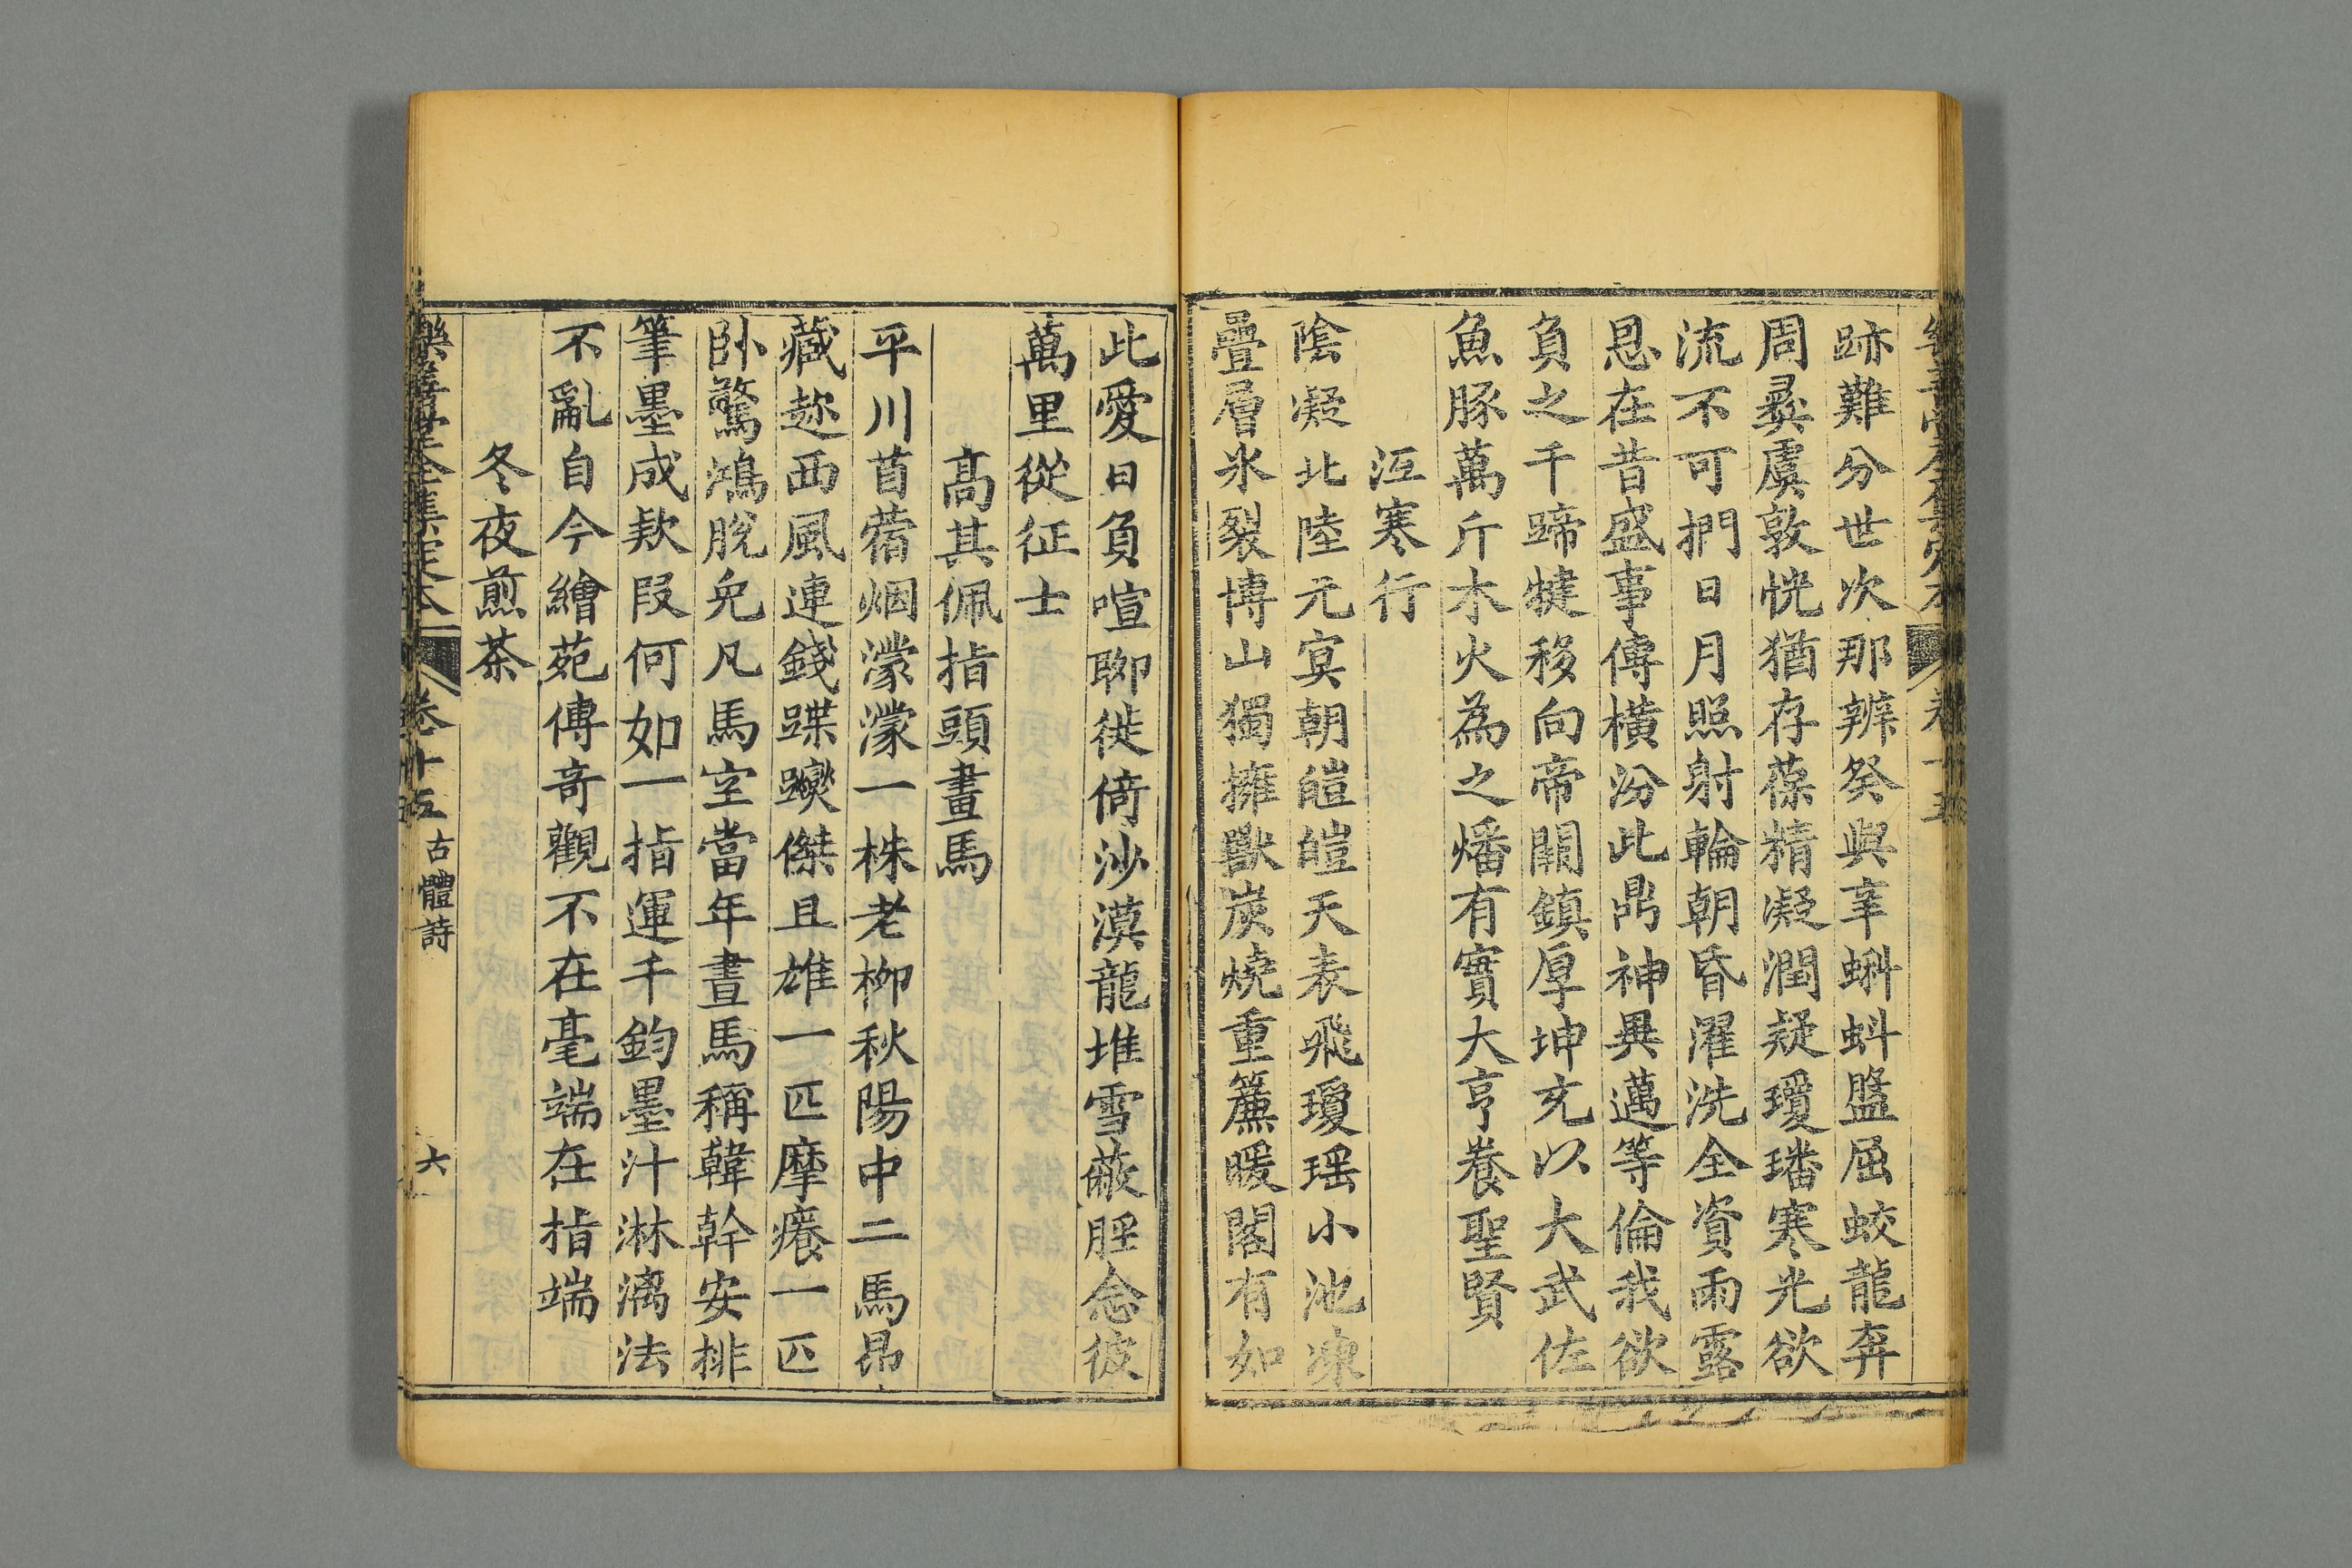 跡難分世次那辨癸與辛蝌蚪盤屈蛟龍奔
周彞虞敦恍猶存葆精凝潤疑瓊璠寒光欲
流不可捫日月照射輪朝昏濯洗全資雨露
恩在昔盛事傳橫汾此鼎神異邁等倫我欲
負之千蹄犍移向帝闕鎮厚坤充以大武佐
魚豚萬斤木火為之燔有實大亨養聖賢
沍寒行
陰凝北陸元冥朝皚皚天表飛瓊瑶小池凍
疊層氷裂博山獨擁獸炭燒重簾暖閣有如
此愛日負喧聊徙倚沙漠龍堆雪蔽脛念彼
萬里從征士
高其佩指頭畫馬
平川苜蓿烟濛濛一株老柳秋陽中二馬昂
藏趂西風連錢蹀躞傑且雄一匹摩癢一匹
卧驚鴻脫兔凡馬空當年畫馬稱韓幹安排
筆墨成欵叚何如一指運千鈞墨汁淋漓法
不亂自今繪苑傳竒觀不在毫端在指端
冬夜煎茶
樂善堂全集定本
卷十五
古體詩
六